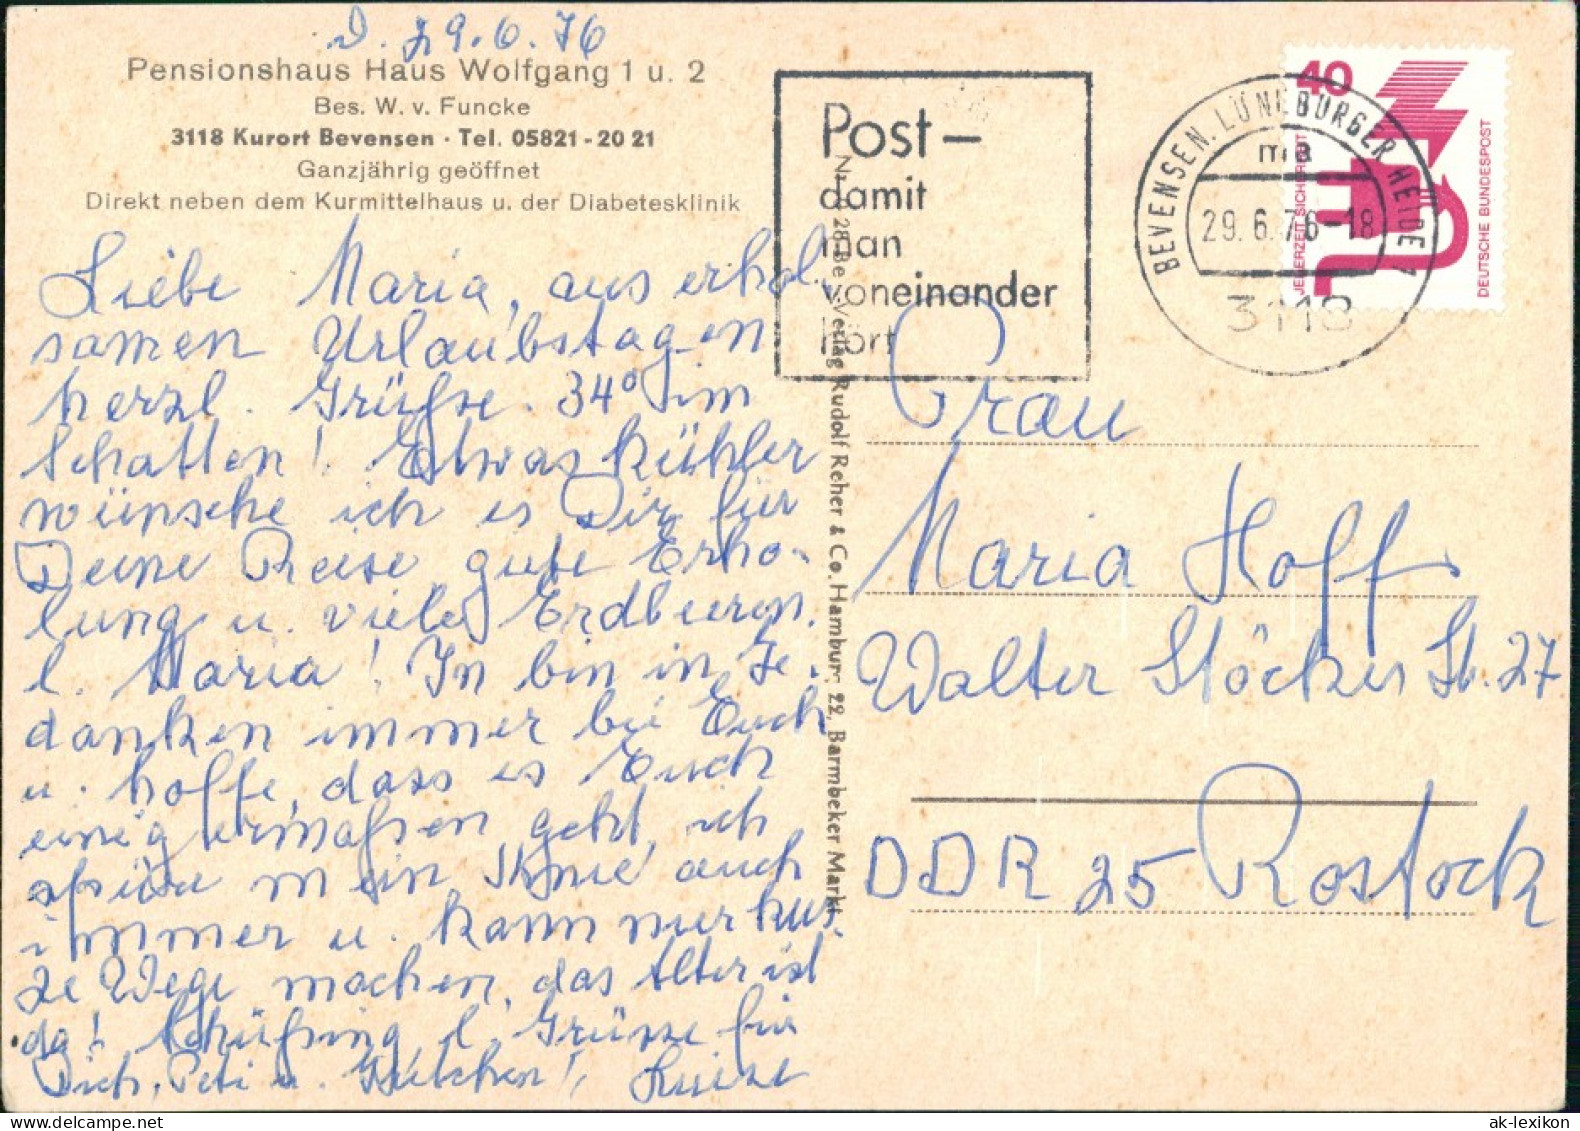 D. 29.6.76
Pensionshaus Haus Wolfgang 1 u. 2
Bes. W. v. Funcke
3118 Kurort Bevensen · Tel. 05821 - 20 21
Ganzjährig geöffnet
Direkt neben dem Kurmittelhaus u. der Diabetesklinik
Liebe Maria, aus erhol
samen Urlaubstagen
herzl. Grüße. 34° im
Schatten! Etwas kühler
wünsche ich es Dir für
Deine Reise, gute Erho-
lung u. viele Erdbeeren.
l. Maria! In bin in Ge-
danken immer bei Euch
u. hoffe, dass es Euch
einigermaßen geht, ich
spüre mein auch
immer u. kann nur kur-
ze Wege machen, das Alter ist
da! l. Grüsse für
Dich, Peti u. ! Luise
Post –
damit
man
voneinander
hört
BEVENSEN. LÜNEBURGER HEIDE 1
ma
29. 6. 76-18
3118
40
JEDERZEIT SICHERHEIT
DEUTSCHE BUNDESPOST
Verlag Rudolf Reher & Co. Hamburg 22, Barmbeker Markt
Frau
Maria Hoff
Walter Stöcker St. 27
DDR 25 Rostock
ak-lexikon